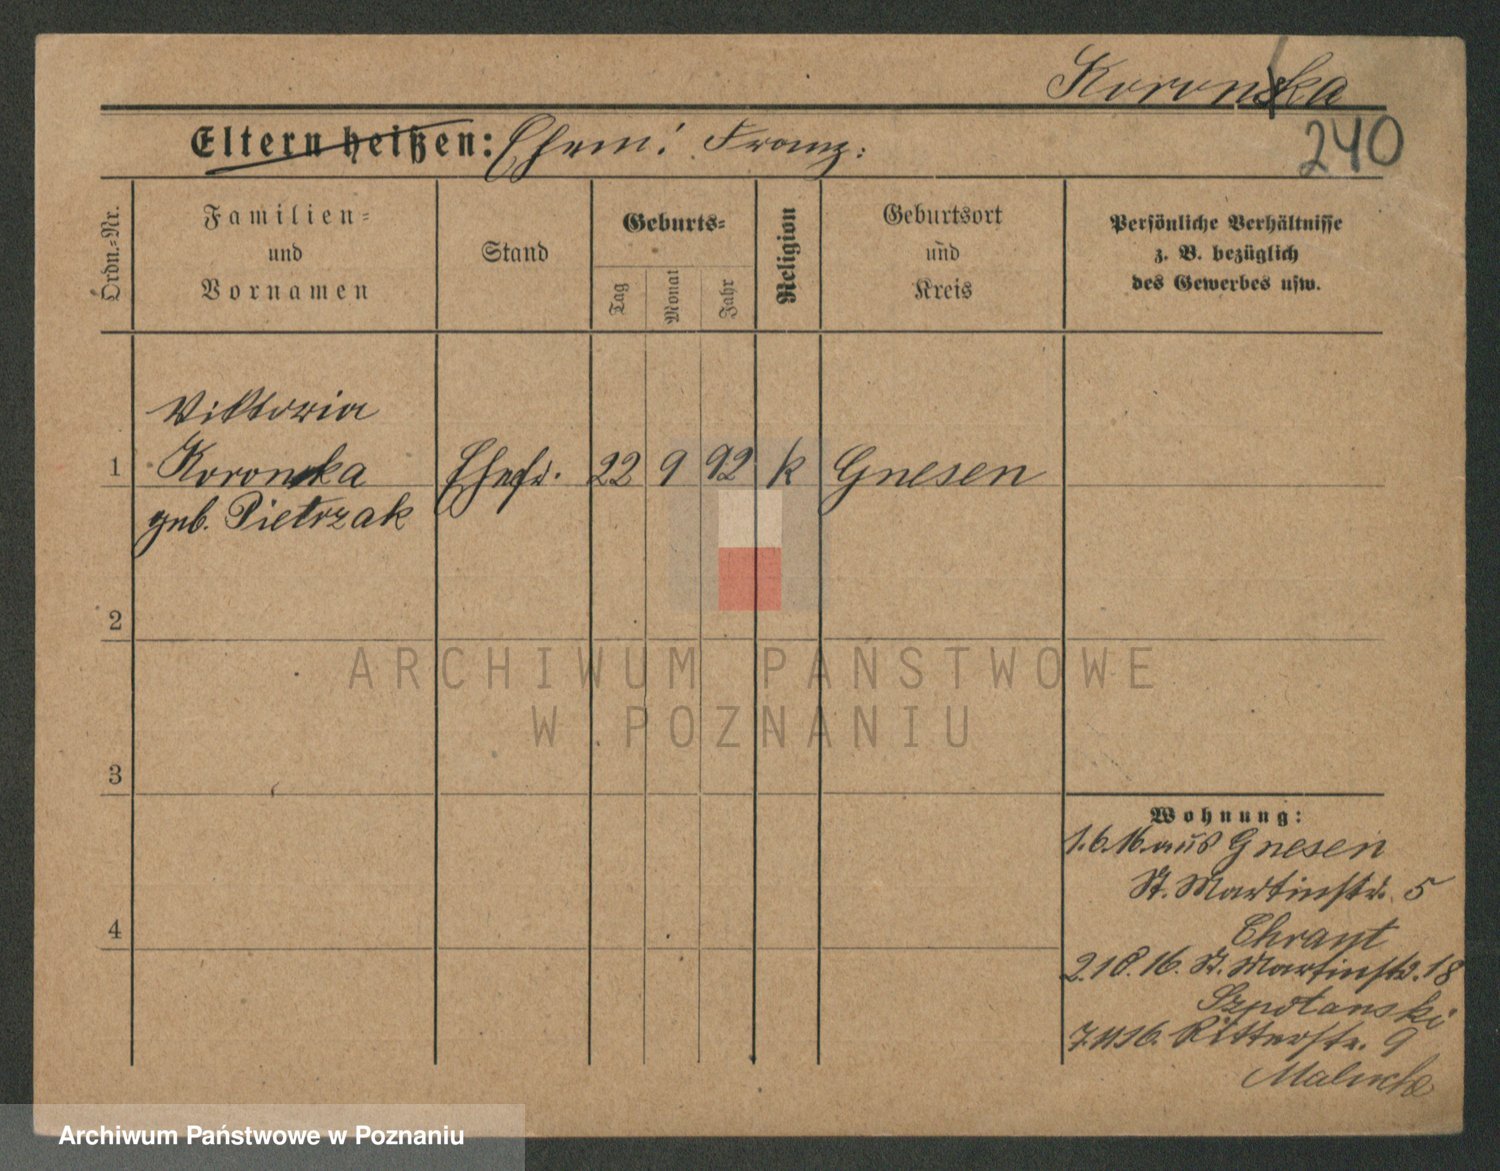 Koronska
240
Eltern heißen: Ehem: Franz:
Ordn.-Nr.
Familien-
und
Vornamen
Stand
Geburts-
Tag
Monat
Jahr
Religion
Geburtsort
und
Kreis
Persönliche Verhältnisse
z. B. bezüglich
des Gewerbes usw.
Viktoria
1 Koronska Ehefr. 22 9 92 k Gnesen
geb. Pietrzak
2
ARCHIWUM PAŃSTWOWE
W POZNANIU
3
Wohnung:
1.6.16. aus Gnesen
St. Martinstr. 5
4
2.10.16. St. Martinstr. 18
Szpotanski
7.11.16. Ritterstr. 9
Archiwum Państwowe w Poznaniu